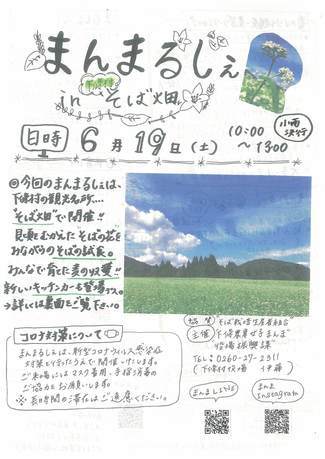 まんまるしぇ
下條村
in そば畑
日時 6月19日(土) 10:00～13:00
小雨決行
◎今回のまんまるしぇは、
下條村の観光名所…
"そば畑"で開催!!
見頃をむかえた"そばの花を
ながめながらのそばの試食。
みんなで育てた麦の収獲!!
新しいキッチンカーも登場します。
→詳しくは裏面をご覧下さい。
コロナ対策について
まんまるしぇは、新型コロナウイルス感染症
対策を行ったうえで開催いたします。
ご来場にはマスク着用、手指消毒の
ご協力をお願いします。
※長時間の滞在はご遠慮ください。
協賛 そば栽培生産者組合
主催 下條農業女子まんま
役場振興課
TEL: 0260-27-2311
(下條村役場 伊藤)
まんま
Instagram